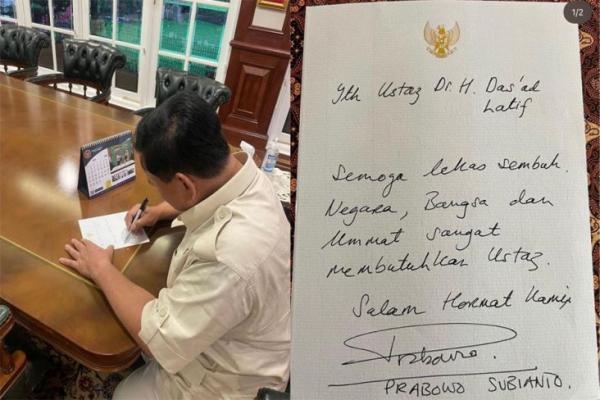 1/2
Yth Ustaz Dr. H. Das'ad
Latif
Semoga lekas sembuh.
Negara, Bangsa dan
Ummat sangat
membutuhkan Ustaz.
Salam Hormat Kami,
Prabowo.
PRABOWO SUBIANTO.